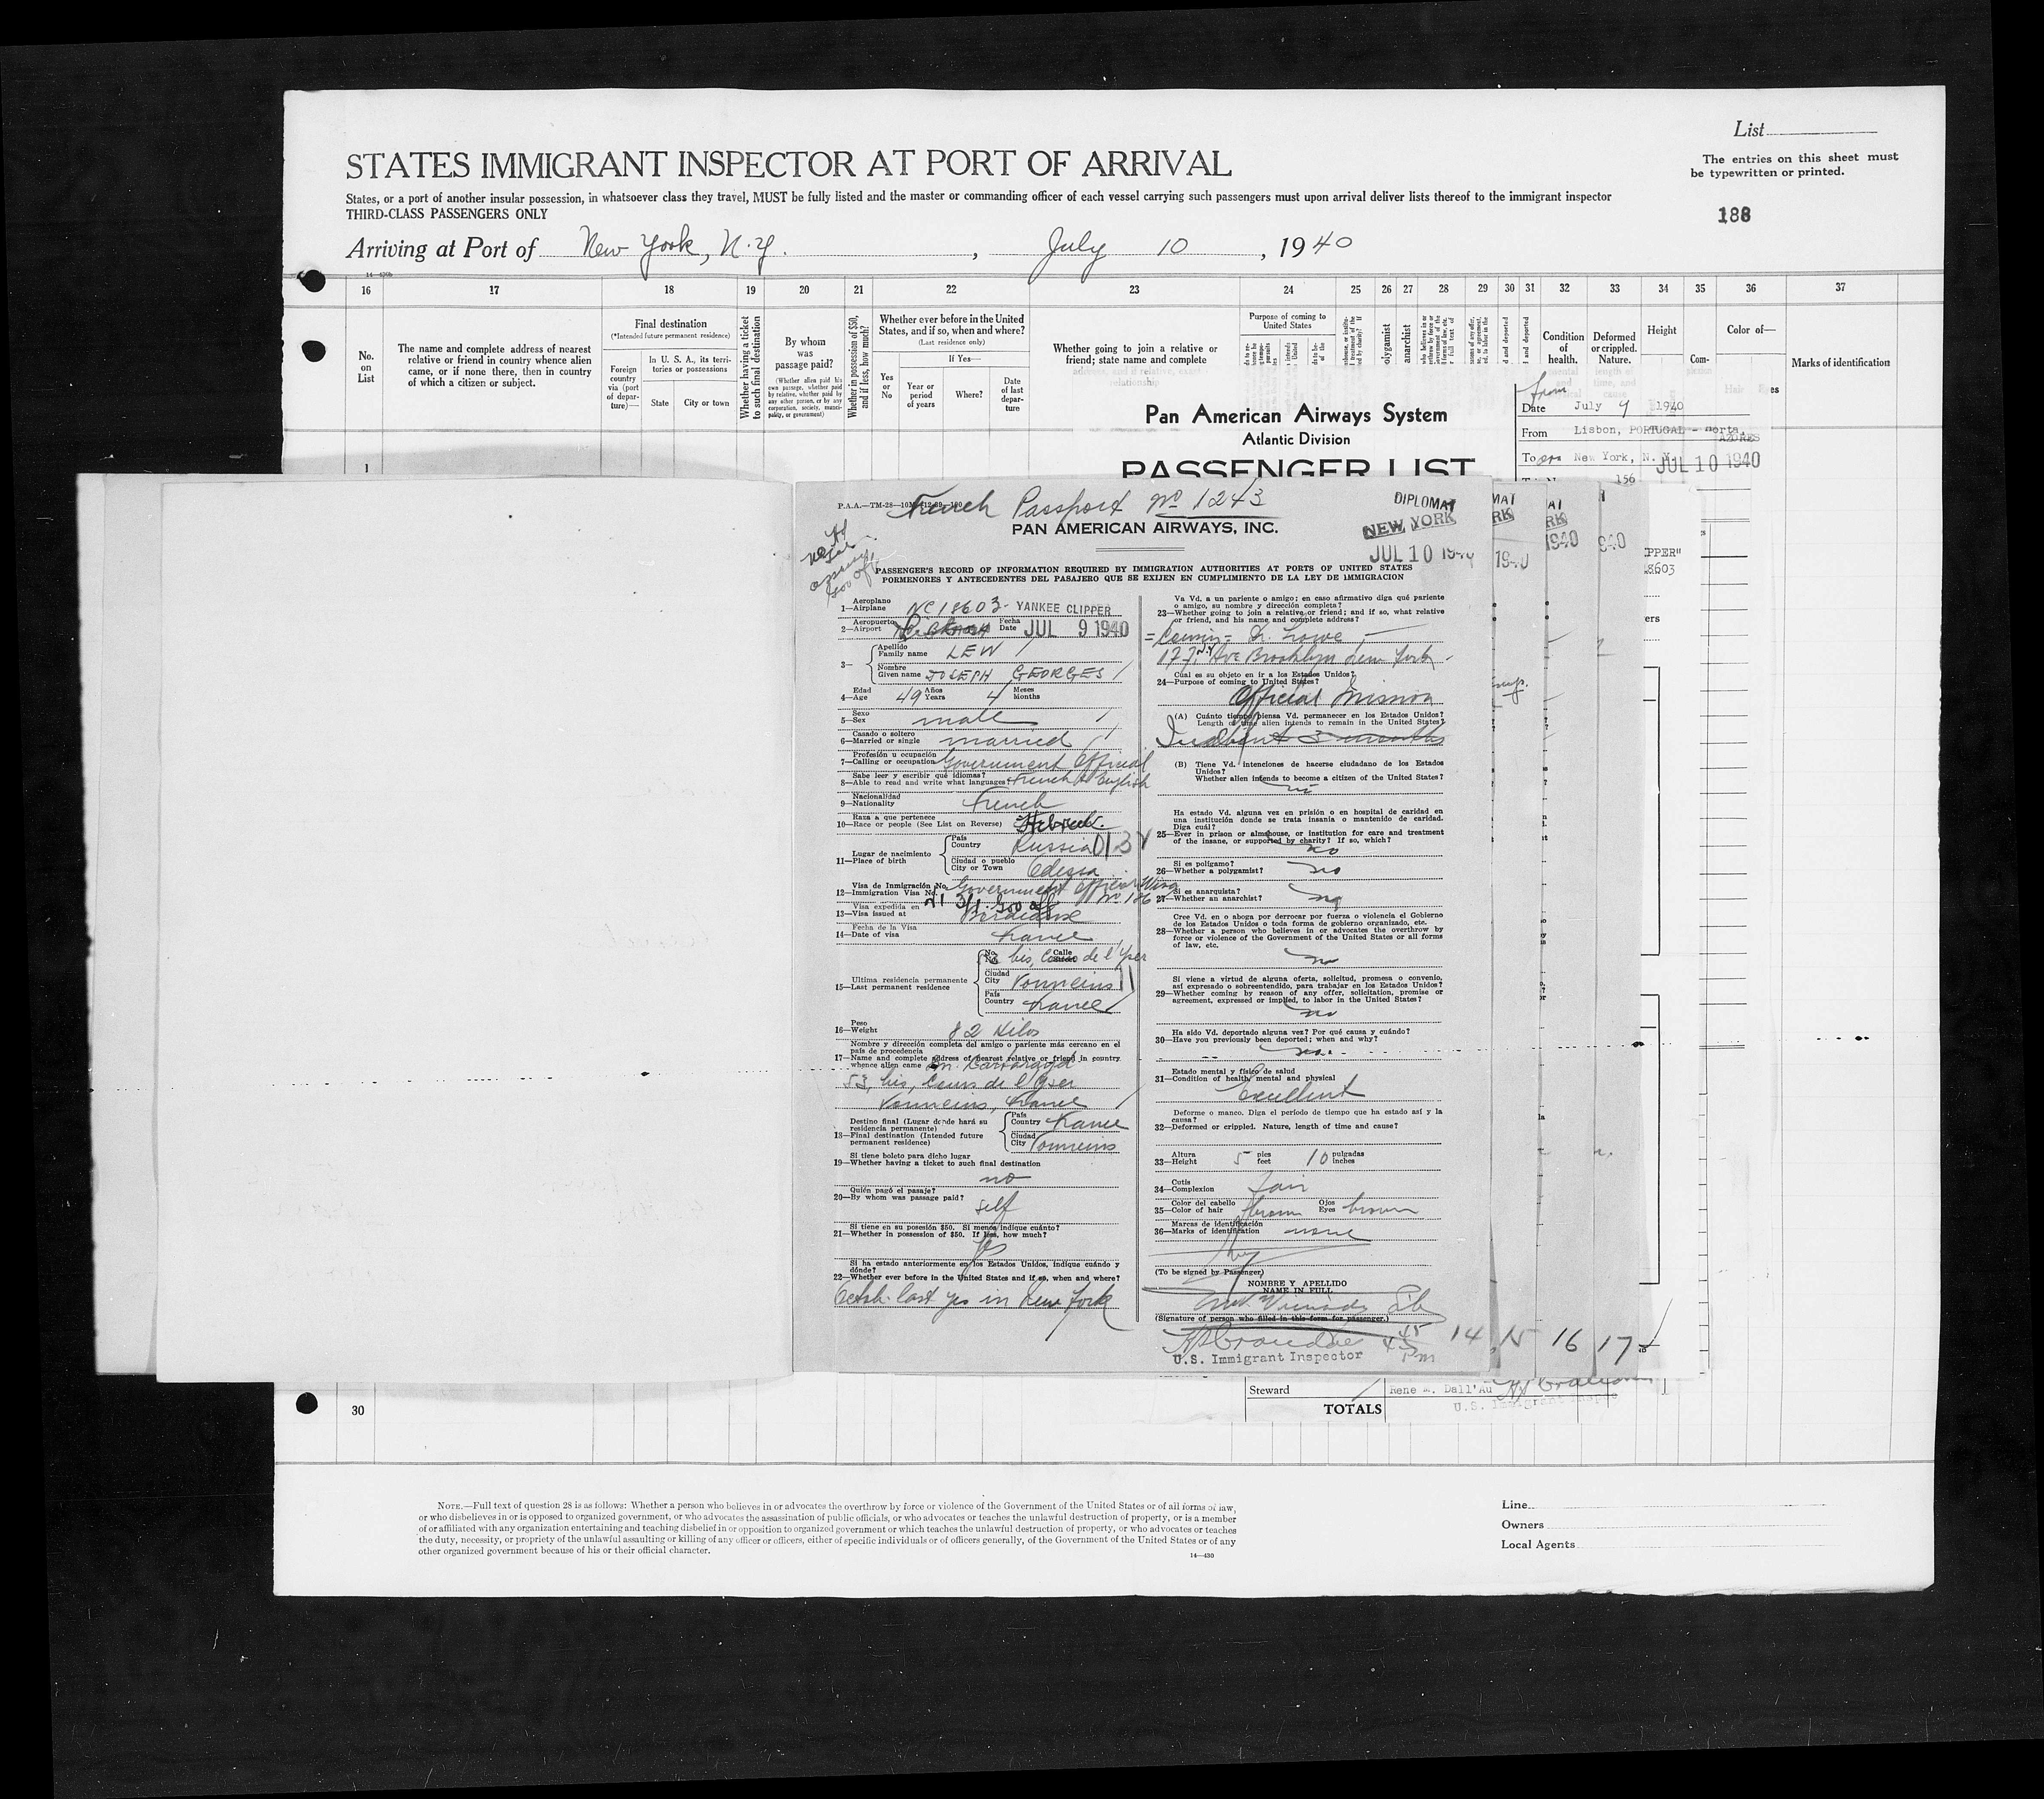 List
The entries on this sheet must
be typewritten or printed.
188
STATES IMMIGRANT INSPECTOR AT PORT OF ARRIVAL
States, or a port of another insular possession, in whatsoever class they travel, MUST be fully listed and the master or commanding officer of each vessel carrying such passengers must upon arrival deliver lists thereof to the immigrant inspector
THIRD-CLASS PASSENGERS ONLY
Arriving at Port of New York, N.Y. , July 10 , 1940
16 17 18 19 20 21 22 23 24 25 26 27 28 29 30 31 32 33 34 35 36 37
No. on List
The name and complete address of nearest relative or friend in country whence alien came, or if none there, then in country of which a citizen or subject.
Final destination
(*Intended future permanent residence)
Foreign country via (port of departure)—
In U. S. A., its territories or possessions
State
City or town
Whether having a ticket to such final destination
By whom was passage paid?
(Whether alien paid his own passage, whether paid by relative, whether paid by any other person, or by any corporation, society, municipality, or government)
Whether in possession of $50, and if less, how much?
Whether ever before in the United States, and if so, when and where?
(Last residence only)
If Yes—
Yes or No
Year or period of years
Where?
Date of last departure
Whether going to join a relative or friend; state name and complete
address, and if relative, exact relationship
Purpose of coming to United States
Condition of health,
Deformed or crippled. Nature,
Height
Com-
Color of—
Marks of identification
Pan American Airways System
Atlantic Division
PASSENGER LIST
from
Date July 9 1940
From Lisbon, PORTUGAL - Horta, AZORES
To New York, N. Y. JUL 10 1940
156
1
P.A.A.—TM-28
French Passport No 1243
PAN AMERICAN AIRWAYS, INC.
DIPLOMAT
NEW YORK
JUL 10 1940
PASSENGER'S RECORD OF INFORMATION REQUIRED BY IMMIGRATION AUTHORITIES AT PORTS OF UNITED STATES
PORMENORES Y ANTECEDENTES DEL PASAJERO QUE SE EXIJEN EN CUMPLIMIENTO DE LA LEY DE IMMIGRACION
Aeroplano
1—Airplane NC18603- YANKEE CLIPPER
Aeropuerto Fecha
2—Airport Date JUL 9 1940
Apellido
Family name LEW
3—
Nombre
Given name JOSEPH GEORGES
Edad Años Meses
4—Age 49 Years 4 Months
Sexo
5—Sex male
Casado o soltero
6—Married or single married
Profesión u ocupación
7—Calling or occupation Government Official
Sabe leer y escribir qué idiomas?
8—Able to read and write what languages French & English
Nacionalidad
9—Nationality French
Raza a que pertenece
10—Race or people (See List on Reverse) Hebrew
Lugar de nacimiento
11—Place of birth
País
Country Russia
Ciudad o pueblo
City or Town Odessa
Visa de Inmigración No.
12—Immigration Visa No. Government Official Visa
No 186
3/1 Gov off
Visa expedida en
13—Visa issued at Bordeaux
Fecha de la Visa
14—Date of visa France
Ultima residencia permanente
15—Last permanent residence
No. Calle
bis, Cours de l'Yser
Ciudad
City Tonneins
País
Country France
Peso
16—Weight 82 kilos
Nombre y dirección completa del amigo o pariente más cercano en el país de procedencia
17—Name and complete address of nearest relative or friend in country whence alien came
53, bis, Cours de l'Yser
Tonneins, France
Destino final (Lugar donde hará su residencia permanente)
18—Final destination (Intended future permanent residence)
País
Country France
Ciudad
City Tonneins
Si tiene boleto para dicho lugar
19—Whether having a ticket to such final destination
no
Quién pagó el pasaje?
20—By whom was passage paid?
self
Si tiene en su posesión $50. Si menos indique cuánto?
21—Whether in possession of $50. If less, how much?
yes
Si ha estado anteriormente en los Estados Unidos, indique cuándo y dónde?
22—Whether ever before in the United States and if so, when and where?
last yes in New York
Va Vd. a un pariente o amigo; en caso afirmativo diga qué pariente o amigo, su nombre y dirección completa?
23—Whether going to join a relative or friend; and if so, what relative or friend, and his name and complete address?
= Cousin = Lowe,
177, Ave Brooklyn New York
Cuál es su objeto en ir a los Estados Unidos?
24—Purpose of coming to United States?
Official Mission
(A) Cuánto tiempo piensa Vd. permanecer en los Estados Unidos?
Length of time alien intends to remain in the United States?
3 months
(B) Tiene Vd. intenciones de hacerse ciudadano de los Estados Unidos?
Whether alien intends to become a citizen of the United States?
no
Ha estado Vd. alguna vez en prisión o en hospital de caridad en una institución donde se trata insania o mantenido de caridad. Diga cuál?
25—Ever in prison or almshouse, or institution for care and treatment of the insane, or supported by charity? If so, which?
no
Si es polígamo?
26—Whether a polygamist? no
Si es anarquista?
27—Whether an anarchist? no
Cree Vd. en o aboga por derrocar por fuerza o violencia el Gobierno de los Estados Unidos o toda forma de gobierno organizado, etc.
28—Whether a person who believes in or advocates the overthrow by force or violence of the Government of the United States or all forms of law, etc.
no
Si viene a virtud de alguna oferta, solicitud, promesa o convenio, así expresado o sobreentendido, para trabajar en los Estados Unidos?
29—Whether coming by reason of any offer, solicitation, promise or agreement, expressed or implied, to labor in the United States?
no
Ha sido Vd. deportado alguna vez? Por qué causa y cuándo?
30—Have you previously been deported; when and why?
no
Estado mental y físico de salud
31—Condition of health, mental and physical
Excellent
Deforme o manco. Diga el período de tiempo que ha estado así y la causa?
32—Deformed or crippled. Nature, length of time and cause?
Altura pies pulgadas
33—Height 5 feet 10 inches
Cutis
34—Complexion fair
Color del cabello Ojos
35—Color of hair brown Eyes brown
Marcas de identificación
36—Marks of identification none
(To be signed by Passenger)
NOMBRE Y APELLIDO
NAME IN FULL
(Signature of person who filled in this form for passenger.)
U.S. Immigrant Inspector
14 15 16 17
Steward Rene M. Dall'Au
TOTALS
U.S. Immigrant Inspe
30
NOTE.—Full text of question 28 is as follows: Whether a person who believes in or advocates the overthrow by force or violence of the Government of the United States or of all forms of law,
or who disbelieves in or is opposed to organized government, or who advocates the assassination of public officials, or who advocates or teaches the unlawful destruction of property, or is a member
of or affiliated with any organization entertaining and teaching disbelief in or opposition to organized government or which teaches the unlawful destruction of property, or who advocates or teaches
the duty, necessity, or propriety of the unlawful assaulting or killing of any officer or officers, either of specific individuals or of officers generally, of the Government of the United States or of any
other organized government because of his or their official character.
14—430
Line
Owners
Local Agents